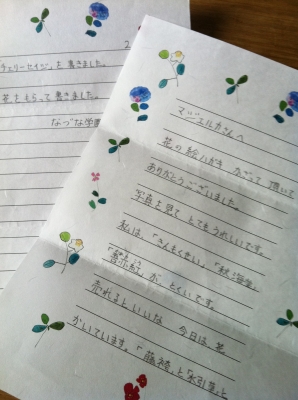 マジェルカさんへ
花の絵ハガキ かざって頂いて
ありがとうございました。
写真を見て とてもうれしいです。
私は、「きんもくせい」「秋海棠」
が、とくいです。
売れるといいな 今日は、花
かいています。「藤袴」と「水引草」と
2
チェリーセイジ」を書きました。
花をもらって書きました。
なづな学園